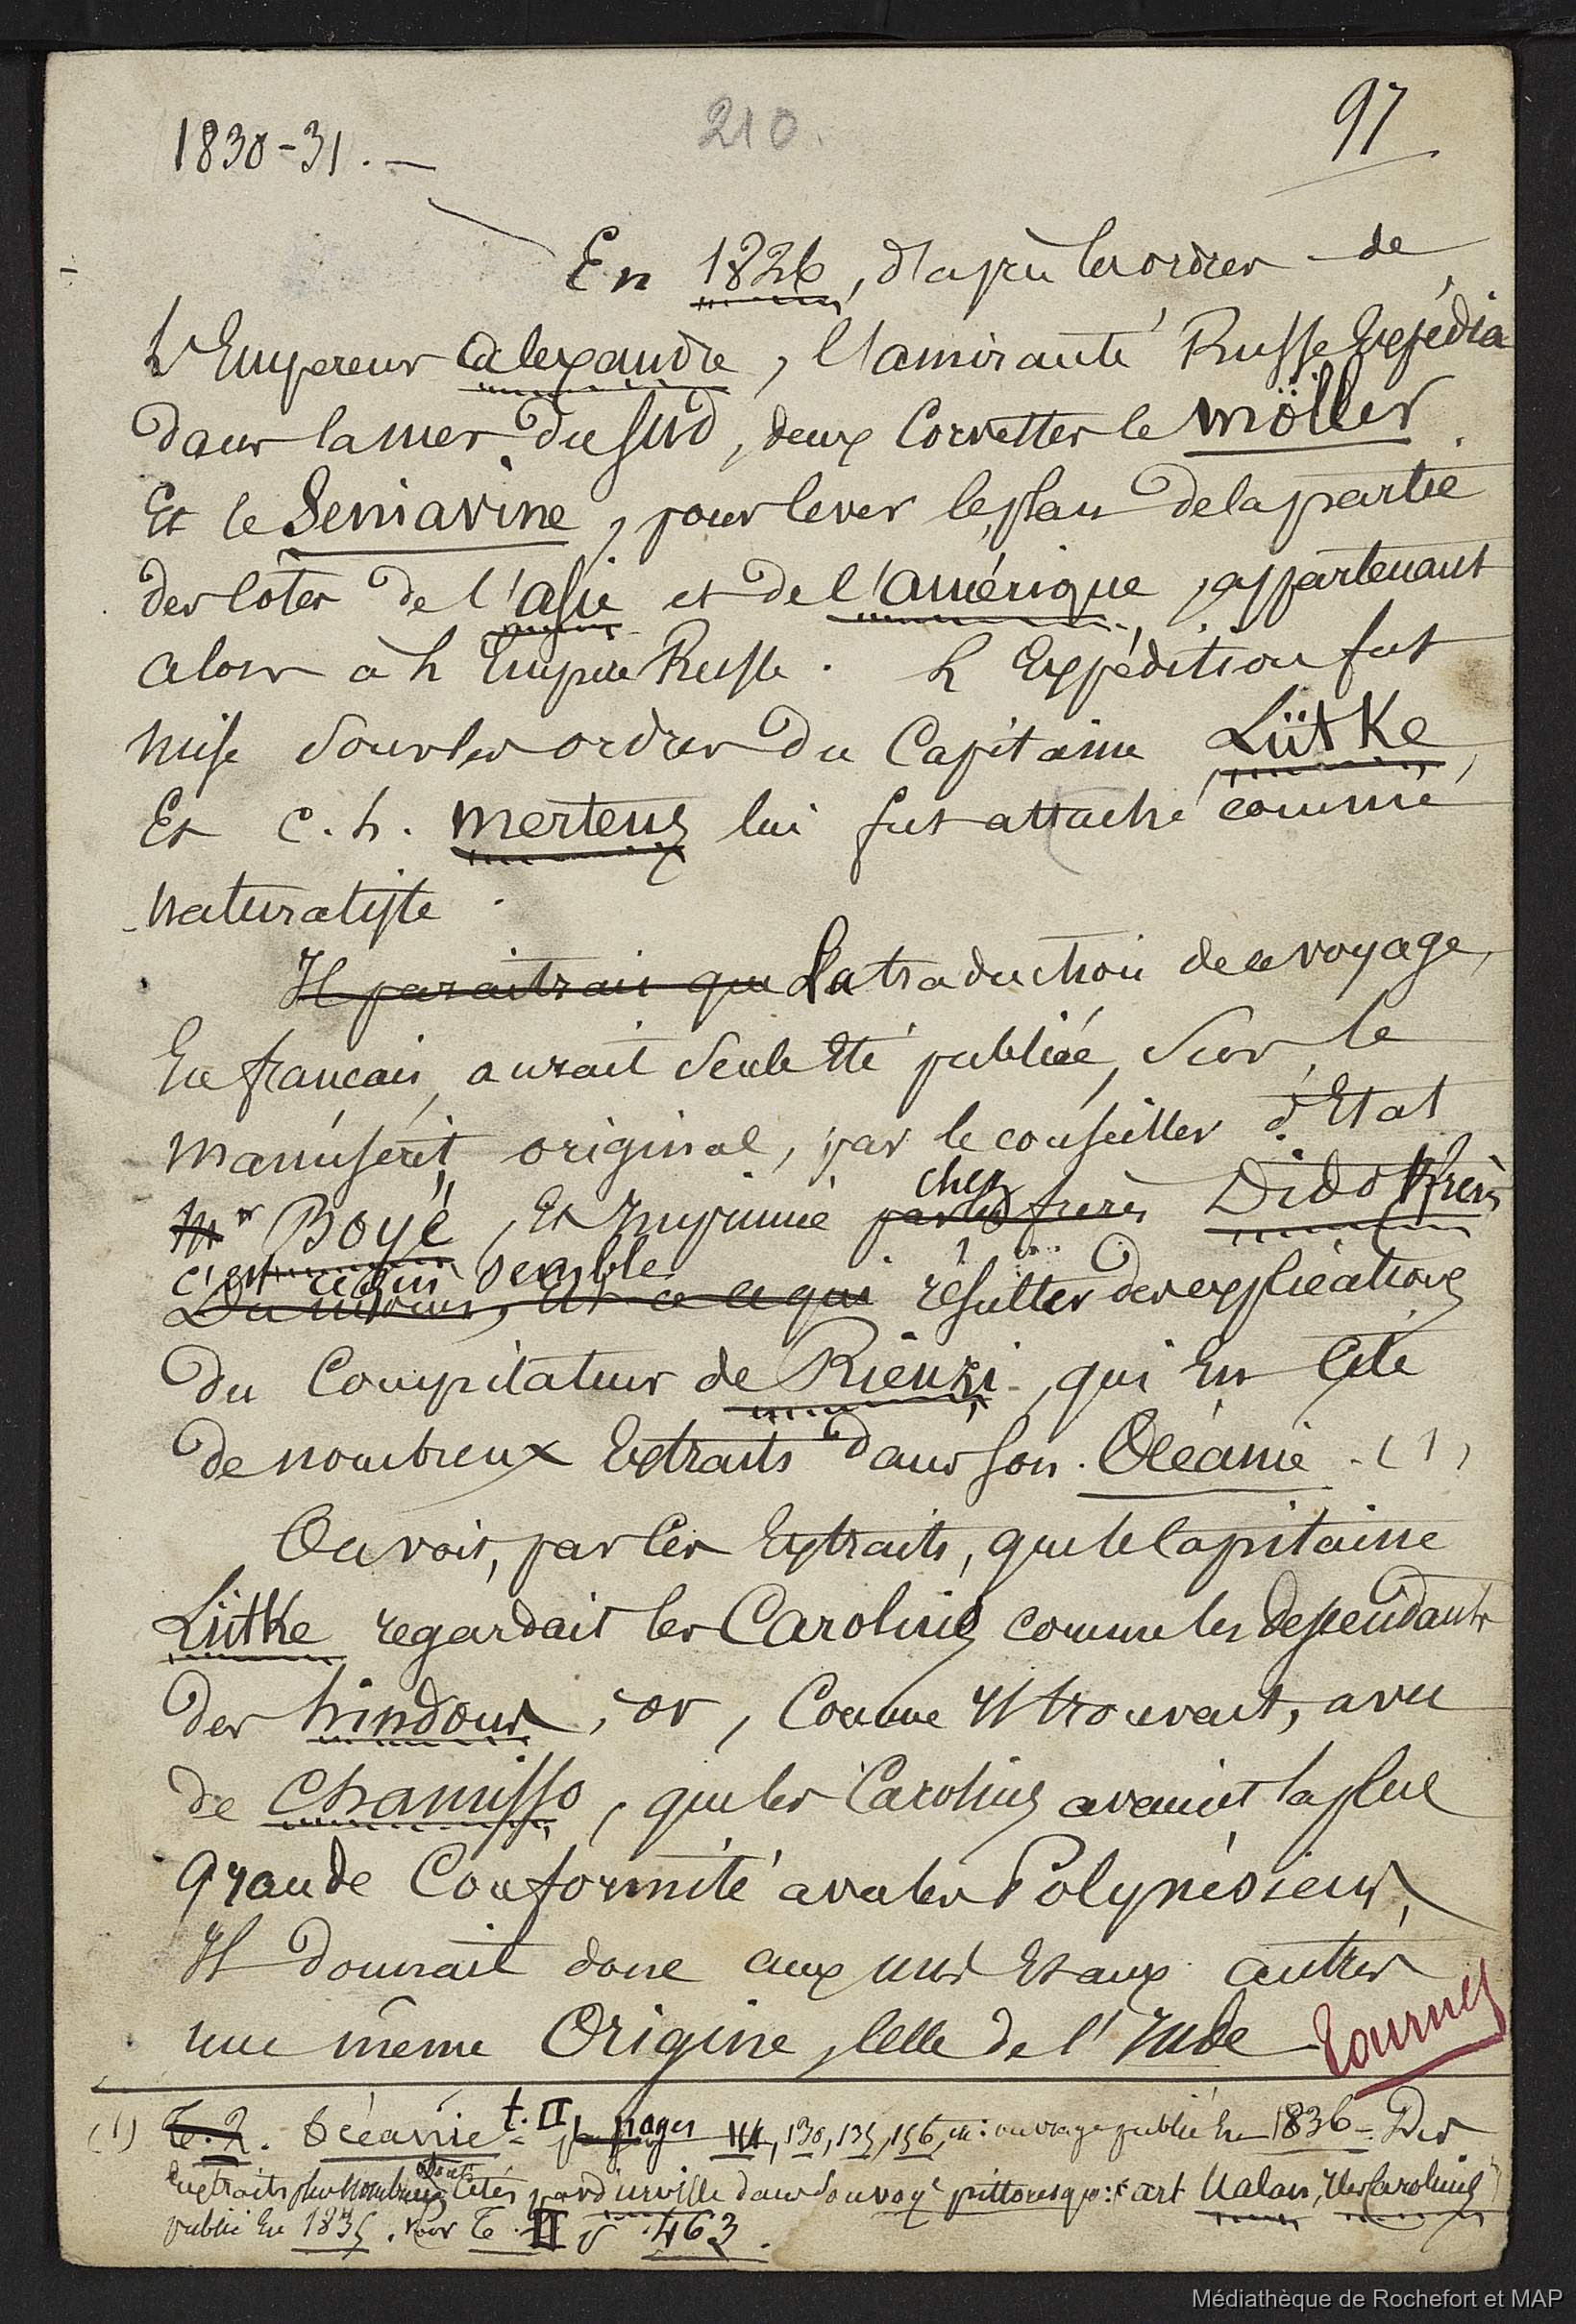 1830-31. —
210.
97
En 1826, d'après les ordres de
L'Empereur alexandre, l'amirauté Russe Expédia
dans la mer du sud, deux Corvettes le möller
Et le Seniavine, pour lever le plan de la partie
des côtes de l'asie et de l'amérique, appartenant
alors à L'Empire Russe. L'Expédition fut
mise sous les ordres du Capitaine Lütke,
Et C. h. mertens lui fut attaché comme
naturaliste.
Il paraitrait que La traduction de ce voyage,
En francais, aurait seule Eté publiée, sur le
manuscrit original, par le conseiller d'Etat
Mr Boyé, Et Imprimé par les frères chez Didot frères
c'est ce qui semble
Du moins, Est ce ce qui résulter des explications
du Compilateur de Rienzi, qui En Cite
de nombreux Extraits dans son Océanie. (1)
On voit, par Ces Extraits, que le Capitaine
Lütke regardait les Carolins comme les descendants
des hindous, or, Comme Il trouvait, avec
de Chamisso, que les Carolins avaient la plus
grande Conformité avec les Polynésiens,
Il donnait donc aux uns Et aux autres
une même Origine, Celle de l'Inde
Tournez
(1) T. 2. Océanie t. II pages 114, 130, 135, 156, &: ouvrage publié En 1836 - Des
Extraits plus nombreux sont Cités par d'urville dans son voyr pittoresque: art Ualan, Iles Carolines
publié En 1835. voir T. II p. 463.
Médiathèque de Rochefort et MAP